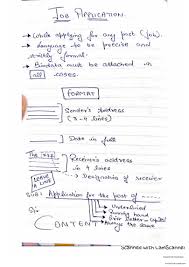 JOB APPLICATION.
→ While applying for any post (job).
→ Language to be precise and
strictly formal.
→ Biodata must be attached in
all cases.
FORMAT
Sender's address
(3-4 lines)
Date in full
The xyz
Receiver's address
in 4 lines
→ Designating of receiver
LEAVE A LINE
Sub: Application for the post of ----
Underlined
Running hand
Over Letter capital
Always the same
Sir
CONTENT
Scanned with CamScanner